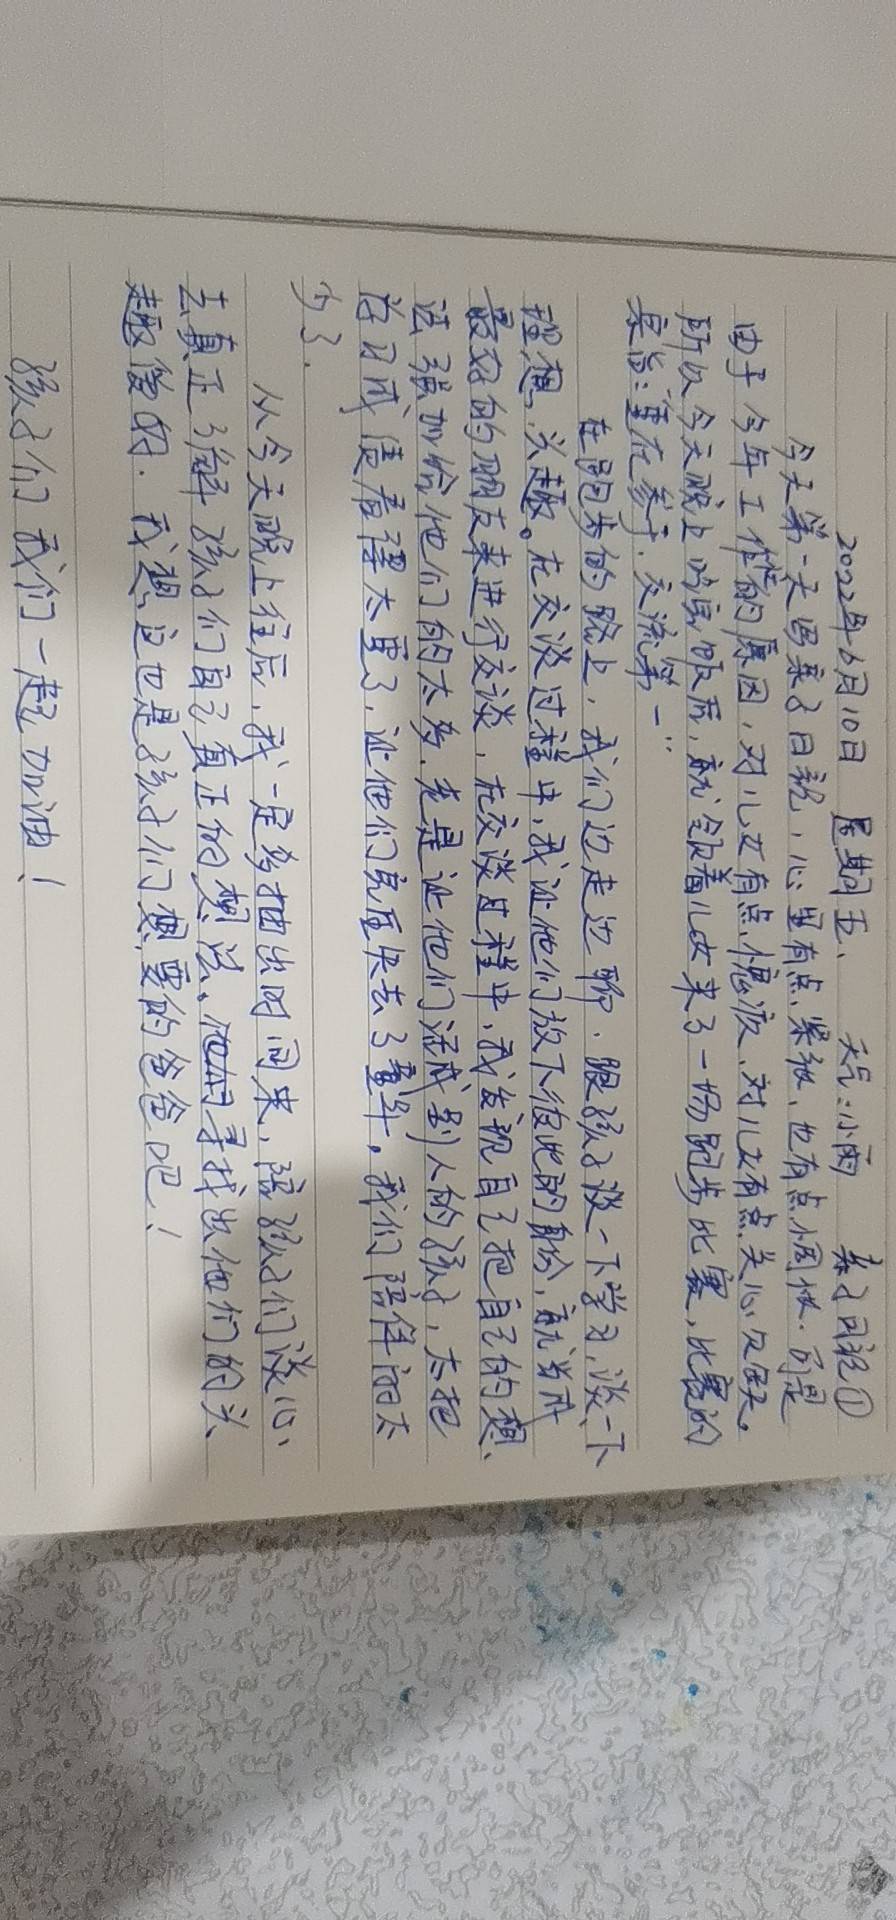 2022年6月10日 星期五、 天气:小雨 亲子日记①
今天第一天写亲子日记,心里有点紧张、也有点小周
由于今年工作的原因,对儿女有点愧疚、对儿女有点关心欠缺。
所以今天晚上吃完晚饭后,就领着儿女来了一场跑步比赛,比赛的
宗旨:重在参于,交流第一"
在跑步的路上,我们边走边聊.跟孩子谈一下学习,谈一下
理想,兴趣。在交谈过程中,我让他们放下彼此的身份,就当成
最好的朋友来进行交谈,在交谈过程中,我发现自己把自己的想
法强加给他们的太多,老是让他们活成别人的孩子,太把
学习成绩看得太重了,让他们完全失去了童年。我们陪伴的太
少了.
从今天晚上往后,我一定多抽出时间来,陪孩子们谈心、
去真正了解孩子们自己真正的想法、他们寻找出他们的兴
趣爱好.我想这也是孩子们想要的爸爸吧!
孩子们我们一起加油!